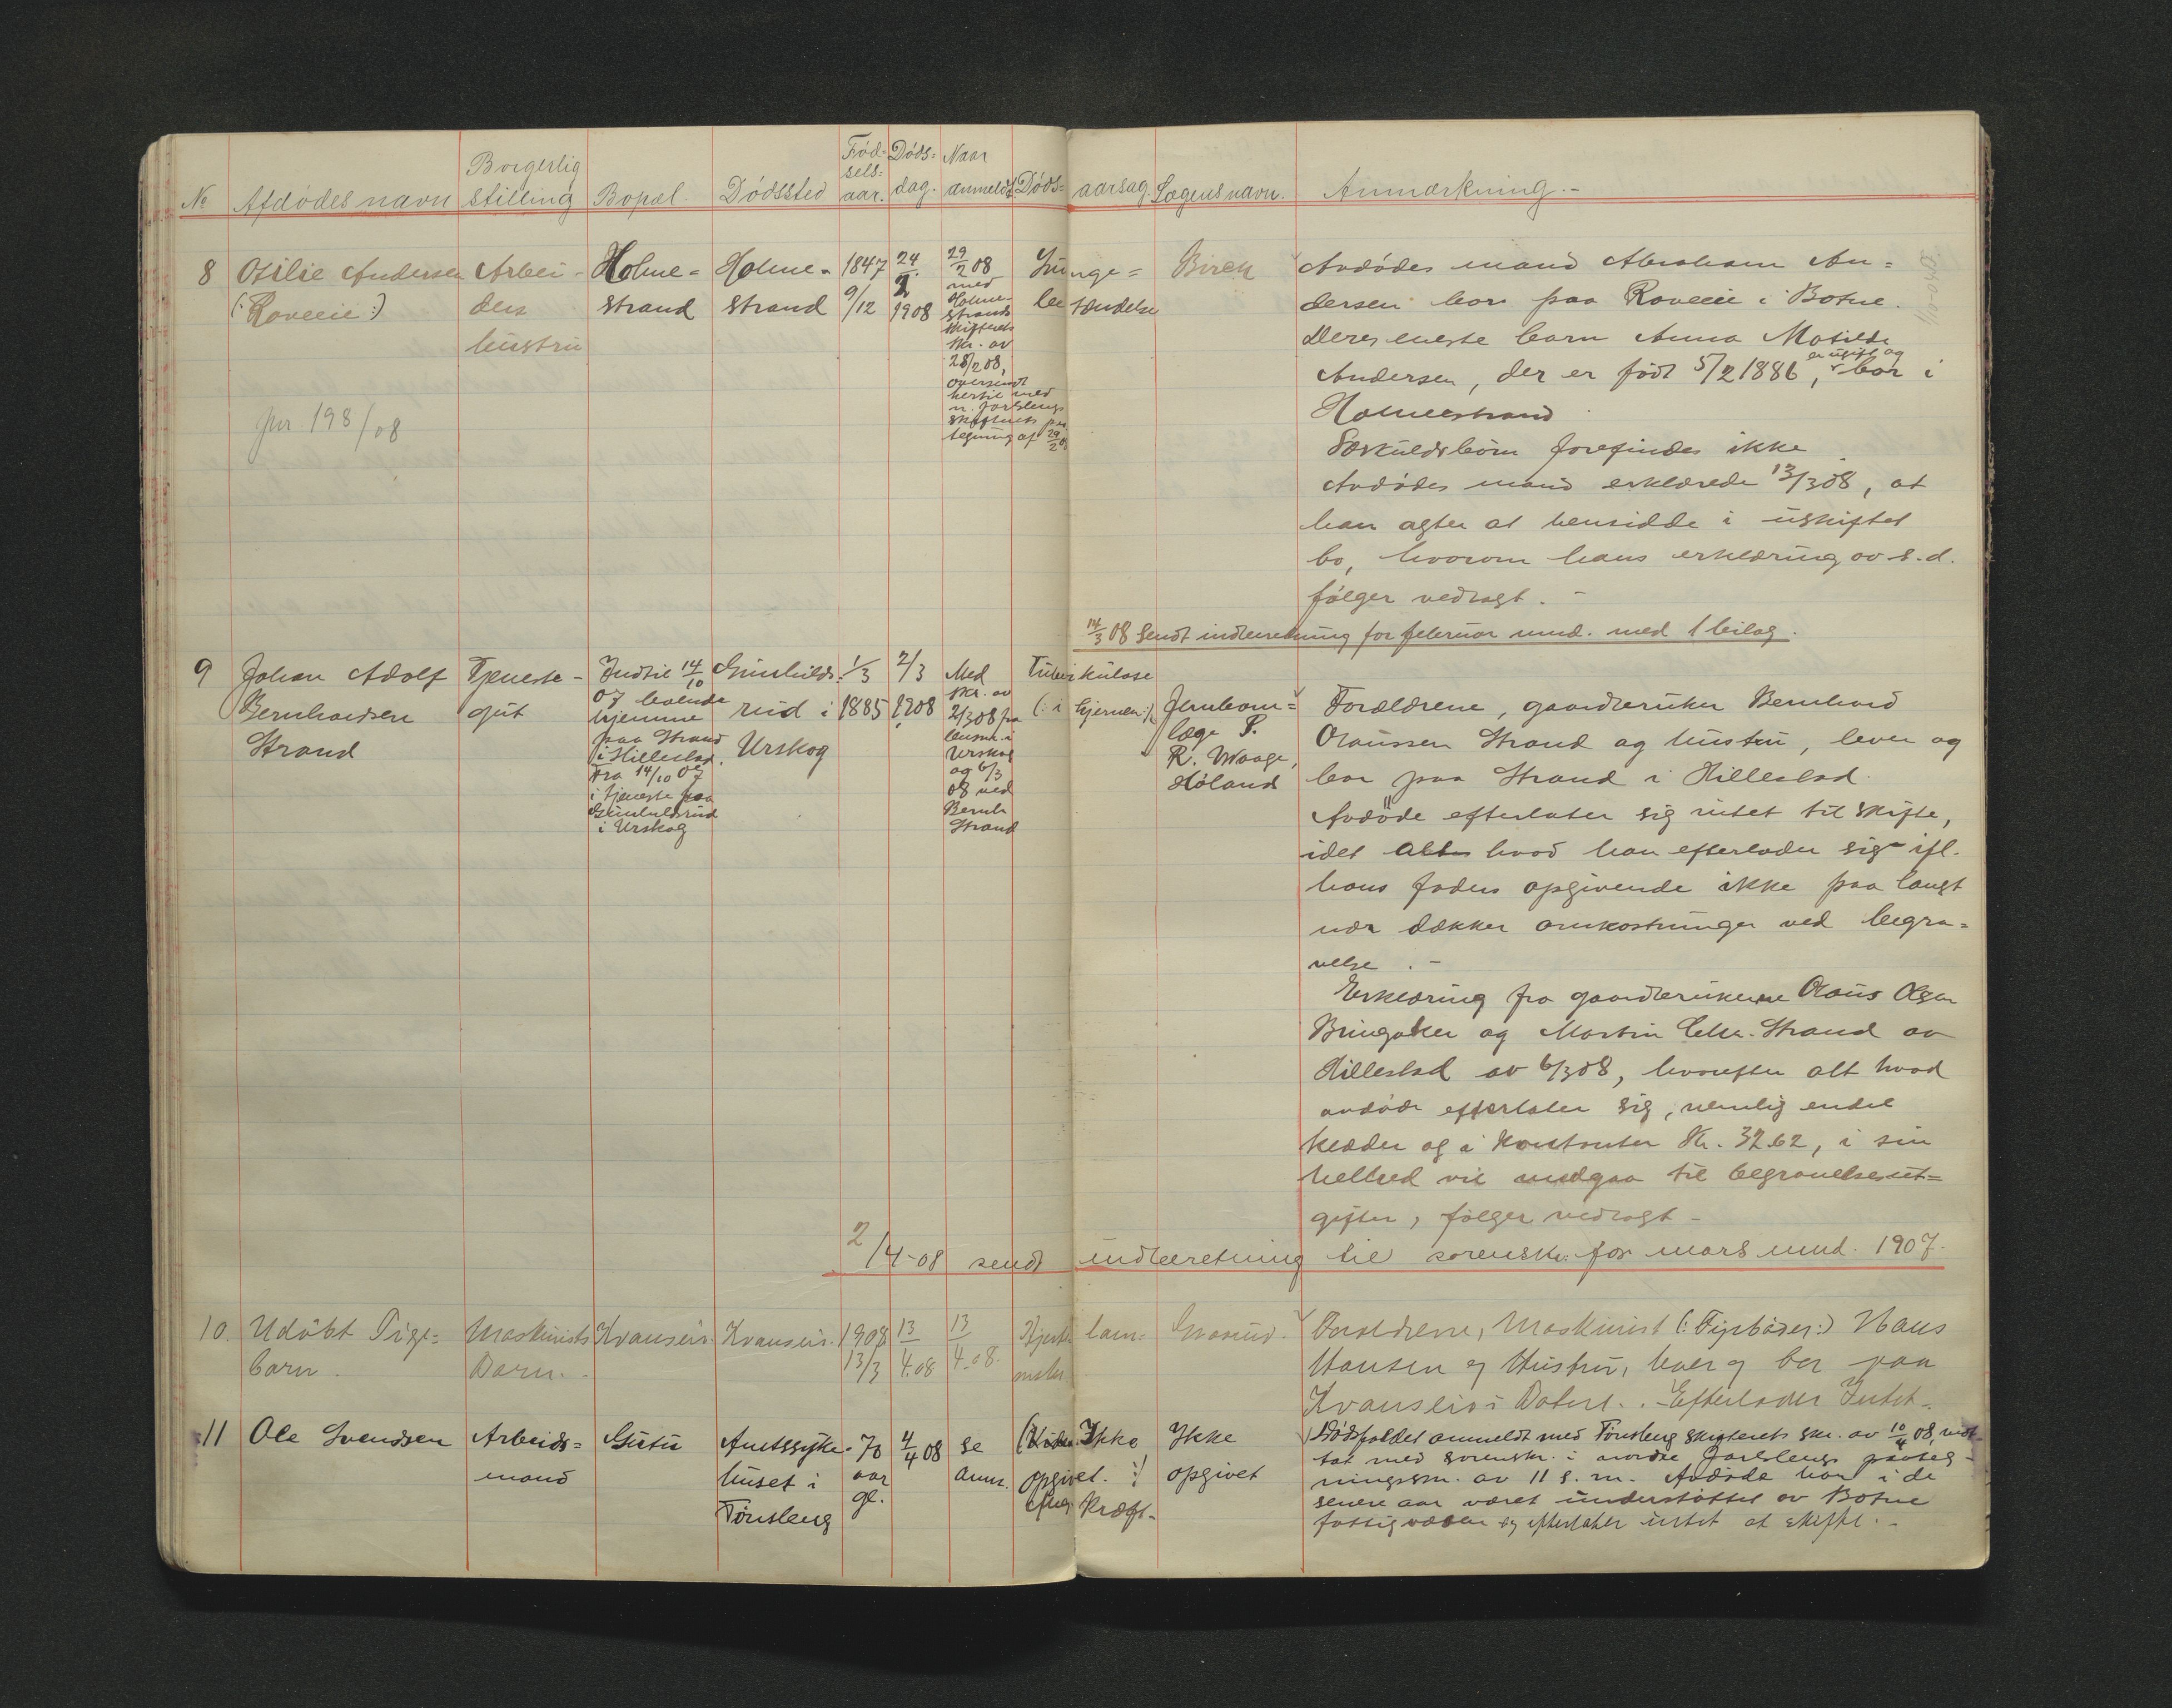 № Afdødes navn Borgerlig stilling Bopæl. Dødssted Fød=sels=aar. Døds=dag. Naar anmeldt Døds=aarsag. Lægens navn. Anmærkning.-
8 Otilie Andersen (: Roveeie :)
Arbei-
ders
hustru
Holme=
strand
Holme=
strand
1847
9/12
24/2.
1908
29/2 08
med
Holme-
strands
skifterets
skr. av
28/2 08,
oversendt
hertil med
n. Jarlsbergs
skifterets paa
tegning af 29/2 08
Lunge=
betændelse
Birch
Avdødes mand Abraham An=
dersen bor paa Roveeie i Botne.
Deres eneste barn Anna Matilde
Andersen, der er født 5/2 1886, er ugift og bor i
Holmestrand
Særkuldsbørn forefindes ikke
Avdødes mand erklærede 13/3 08, at
han agter at hensidde i uskiftet
bo, hvorom hans erklæring av s.d.
følger vedlagt. -
Jnr. 198/08
14/3 08 Sendt indberetning for februar mnd. med 1 bilag.
9 Johan Adolf
Bernhardsen
Strand
Tjeneste-
gut
Indtil 14/10
07 boende
hjemme
paa Strand
i Hillestad.
Fra 14/10 07
i tjeneste paa
Gunhildsrud
i Urskog
Gunhilds-
rud i
Urskog
1/3
1885
2/3
1908
Med
skr. av
2/3 08 fra
lensm. i
Urskog
og 6/3
08 ved
Bernh
Strand
Tuberkulose
(: i hjernen :)
Jernbane=
læge P.
R. Waage,
Høland
Forældrene, gaardbruker Bernhard
Olaussen Strand og hustru, lever og
bor paa Strand i Hillestad.
Avdøde efterlater sig intet til skifte,
idet alt hvad han efterlader sig ifl.
hans faders opgivende ikke paa langt
nær dækker omkostninger ved begra=
velse. -
Erklæring fra gaardbrukerne Olaus Olsen
Bringaker og Martin Chr. Strand av
Hillestad av 6/3 08, hvorefter alt hvad
avdøde efterlater sig, nemlig endel
klæder og i kontanter Kr. 32.62, i sin
helhed vil medgaa til begravelsesut=
gifter, følger vedlagt -
2/4-08 sendt indberetning til sorenskr. for mars mnd. 1907.
10. Udøbt Pige=
barn.
Maskinists
Barn.
Kransliv.
Kransliv.
1908
13/3
13/4.08
13/4.08.
Hjerte lam-
melse
Forældrene, Maskinist (: Fyrbøder :) Hans
Hansen og Hustru, lever og bor paa
Kransliv i Botne. Efterlader Intet.
11 Ole Svendsen
Arbeids=
mand
Gutu
Amtssyke-
huset i
Tønsberg
70
aar
gl.
4/4 08
se
anm.
Ikke
opgivet. :)
Kræft-
Ikke
opgivet
Dødsfaldet anmeldt med Tønsberg skifterets skr. av 10/4 08, mot-
tat med sorenskr. i nordre Jarlsbergs paateg-
ningsskr. av 11 s. m. Avdøde har i de
senere aar været understøttet av Botne
fattigvæsen og efterlater intet at skifte. -